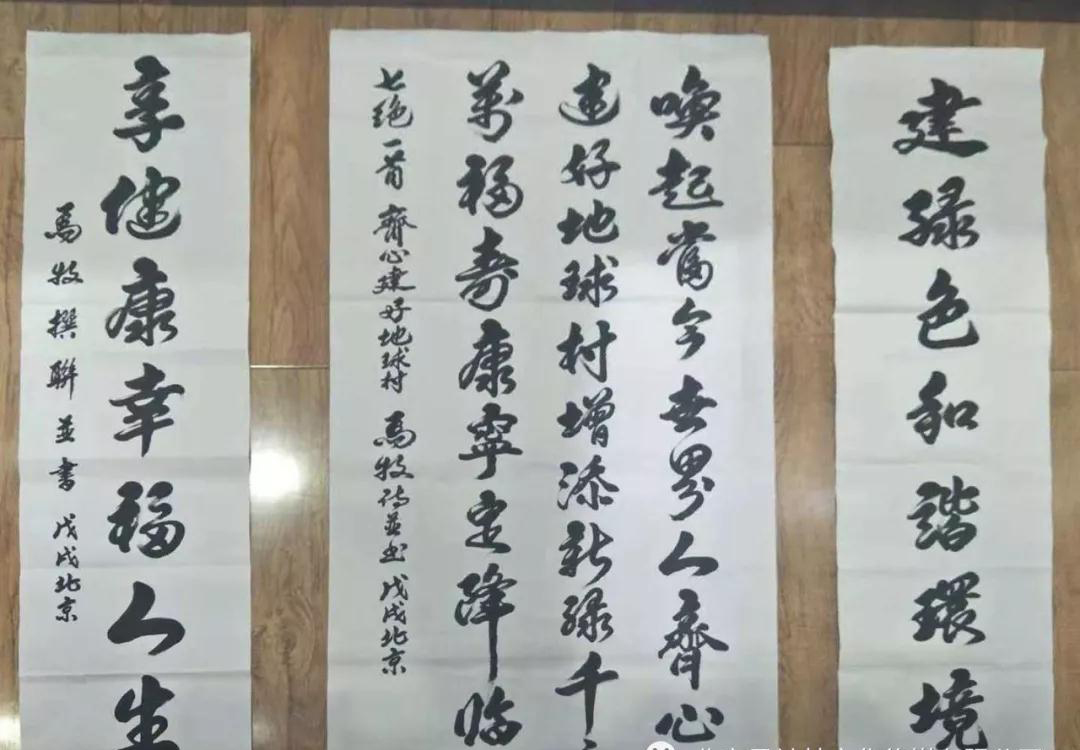 建綠色和諧環境
喚起當今世界人齊心
建好地球村增添新綠千
萬福壽康寧定降臨
七绝一首 齊心建好地球村 馬牧诗並书 戊戌北京
享健康幸福人生
馬牧撰聯並書 戊戌北京